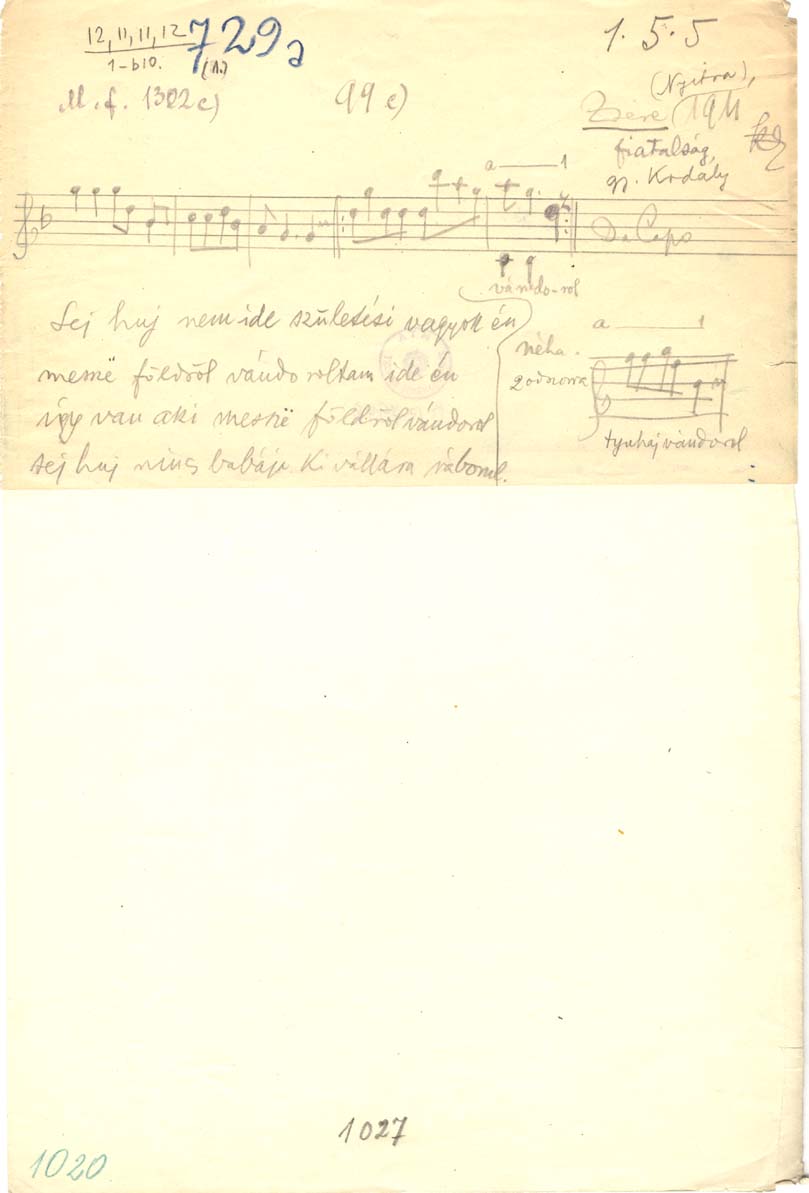 12, 11, 11, 12
1-b10. (1.)
729a
1. 5. 5
M. f. 1302c)
99 c)
(Nyitra),
Zsére 1911
fiatalság,
gy. Kodály
a 1
Da Capo
vándo-rol
Sej huj nem ide születési vagyok én
messzë földről vándoroltam ide én
így van aki messzë földről vándorol
sej huj nincs babája ki vállára ráborul.
a 1
néha
2 odszorra
tyuhaj vándorol
1027
1020